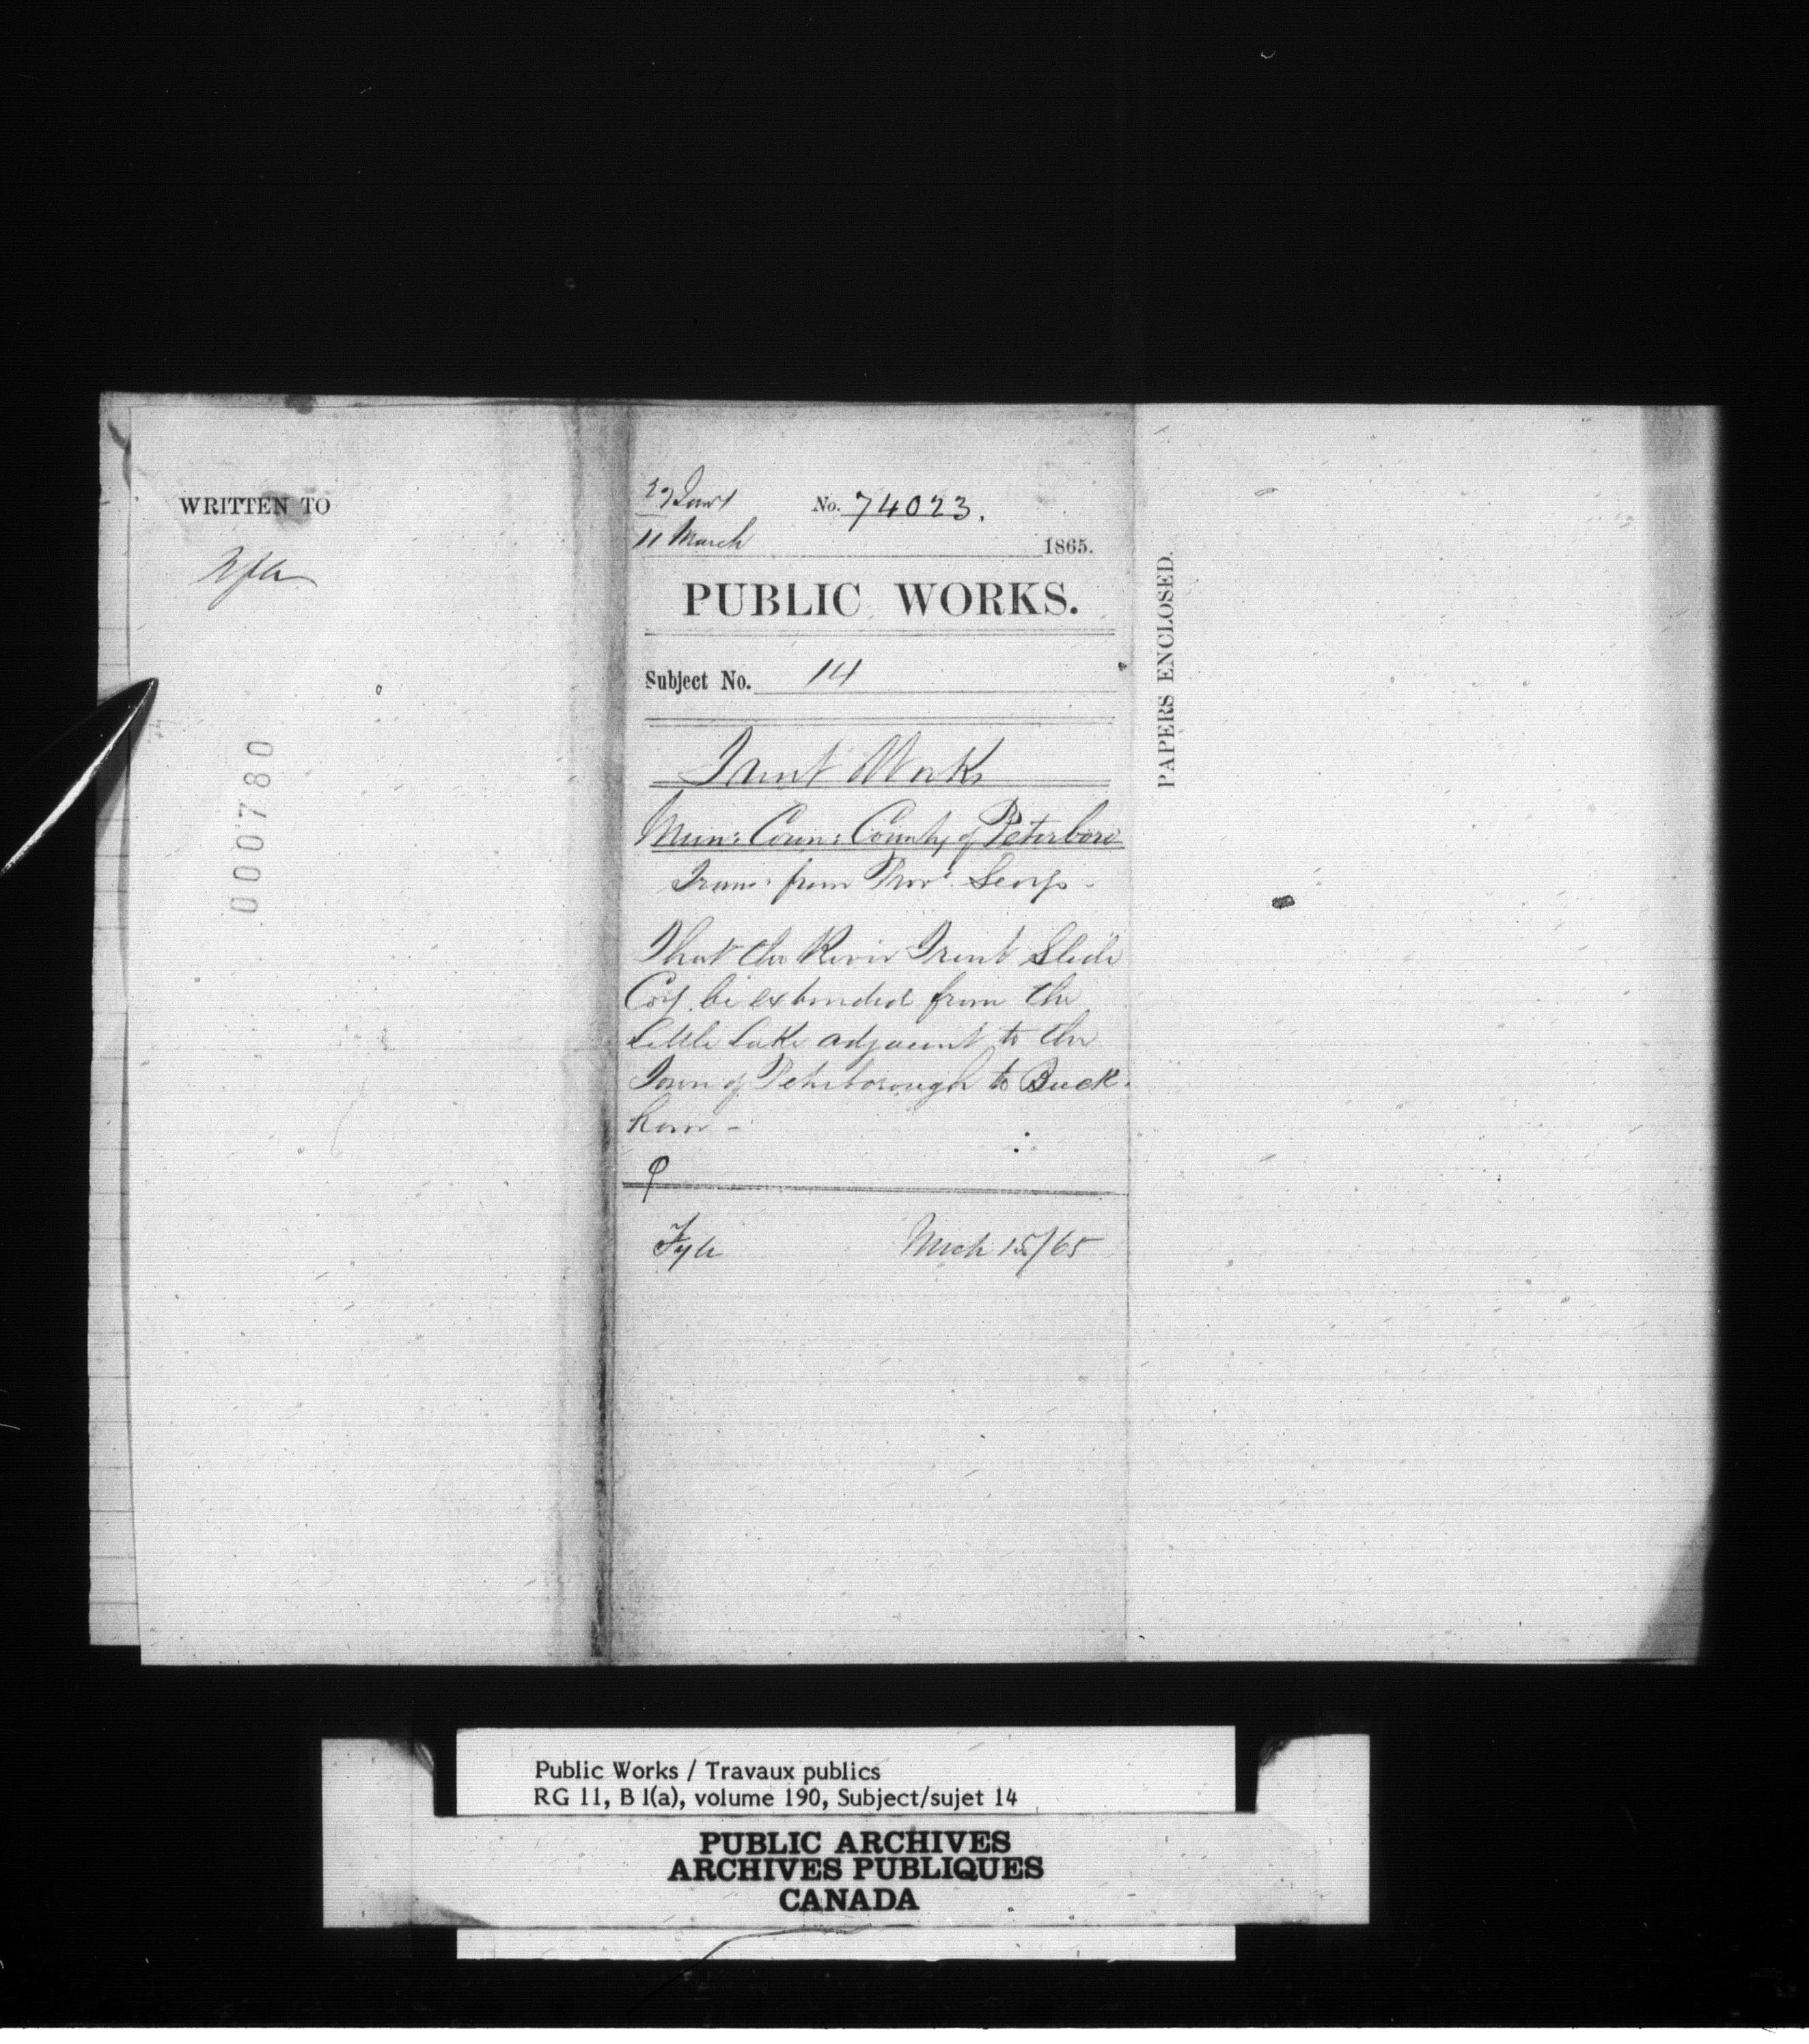 WRITTEN TO
000780
27 Jan'y
No. 74023.
11 March 1865.
PUBLIC WORKS.
Subject No. 14
Trent Works
Mun: Coun: County of Peterboro
Trans: from Prov'l Secy's -
That the River Trent Slide
Coy. be extended from the
Little Lake adjacent to the
Town of Peterborough to Buck-
horn -
Fyle Mrch 15/65
PAPERS ENCLOSED.
Public Works / Travaux publics
RG 11, B 1(a), volume 190, Subject/sujet 14
PUBLIC ARCHIVES
ARCHIVES PUBLIQUES
CANADA